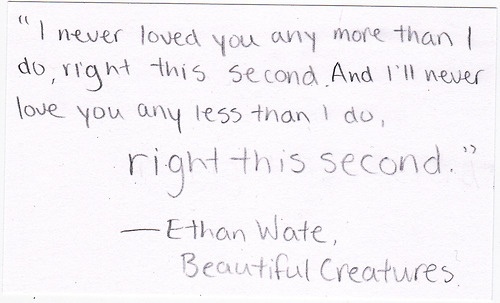 "I never loved you any more than I
do, right this second. And I'll never
love you any less than I do,
right this second."
—Ethan Wate,
Beautiful Creatures.